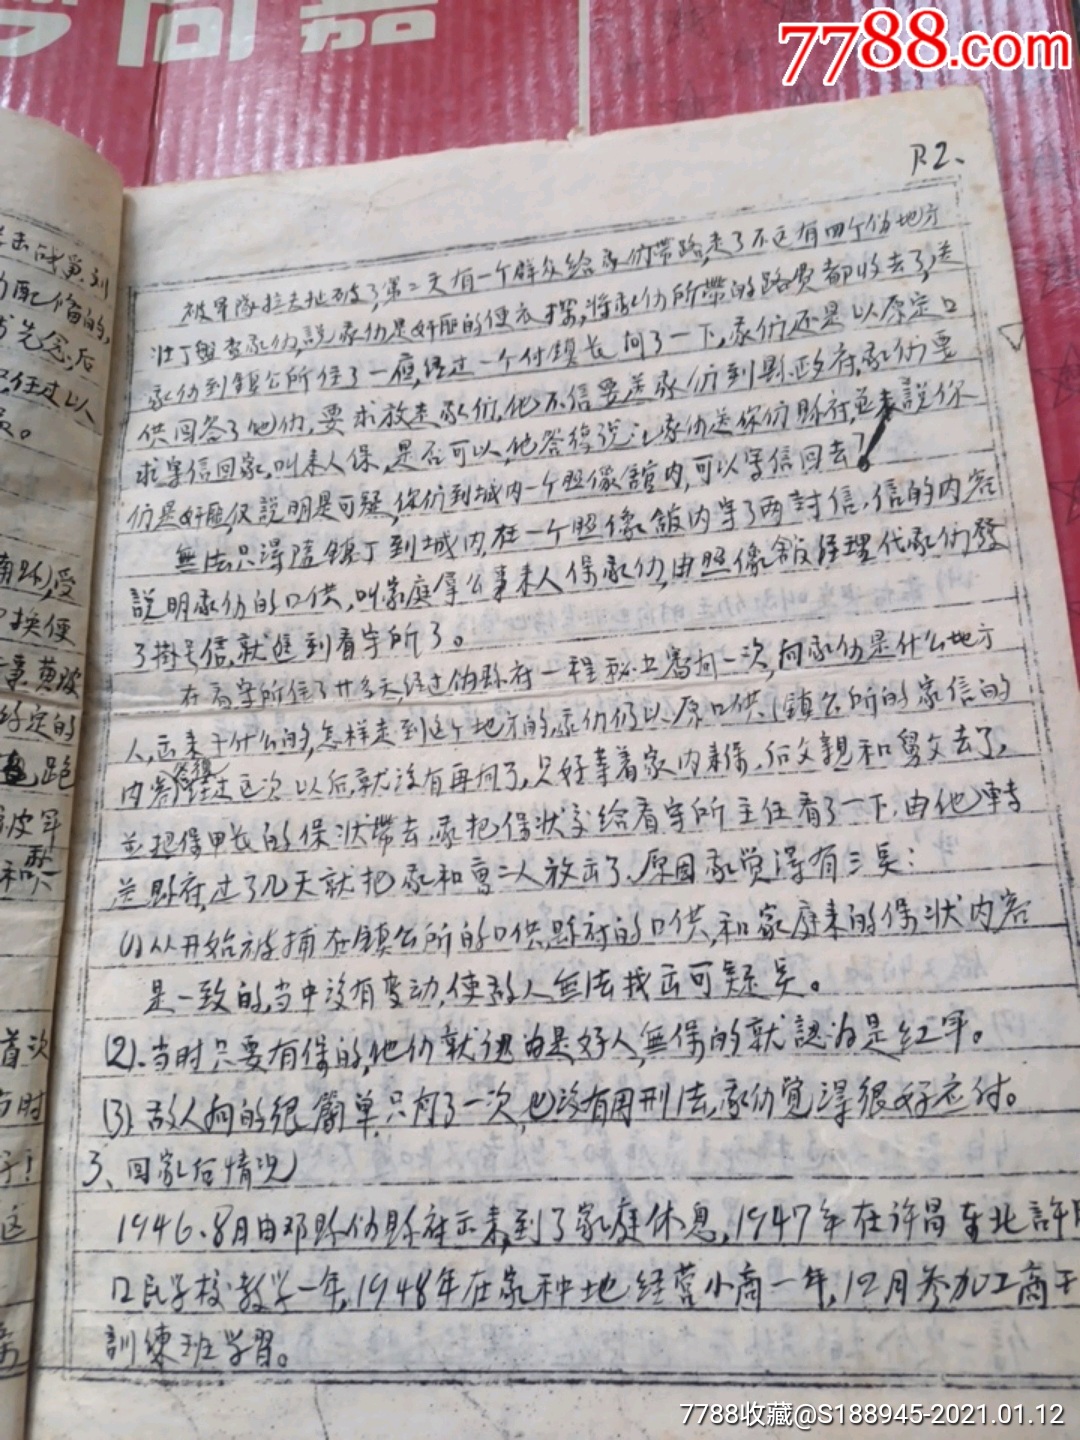 7788.com
P.2.
被軍隊拉去扯破了,第二天有一个群众给我们带路,走了不远有四个伪地方
壮丁盤查我们,説我们是奸匪的便衣探,将我们所带的路费都收去了,送
我们到镇公所住了一夜,经过一个付镇长问了一下,我们还是以原定口
供回答了他们,要求放走我们,他不信要送我们到縣政府,我们要
求写信回家,叫来人保,是否可以,他答復说让我们送你们縣府並未説你
们是奸匪,仅説明是可疑,你们到城内一个照像舘内,可以写信回去!
無法只得随镇丁到城内,在一个照像舘内写了两封信,信的内容
説明我们的口供,叫家庭拿公事来人保我们,由照像舘经理代我们發
了掛号信,就送到看守所了。
在看守所住了廿多天,经过伪縣府一程秘书審问一次,问我们是什么地方
人,出来干什么的,怎样走到这个地方的,我们仍以原口供(镇公所的家信的
内容)答復经过这次以后,就没有再问了,只好等着家内来保,后父親和舅父去了,
並把保甲长的保状带去,我把保状交给看守所主任看了一下,由他轉
送縣府,过了几天就把我和曹二人放出了,原因我觉得有三点:
(1)从开始被捕在镇公所的口供,縣府的口供,和家庭来的保状内容
是一致的,当中没有变动,使敌人無法找出可疑点。
(2).当时只要有保的,他们就认为是好人,無保的就認为是红军。
(3)敌人问的很简单,只问了一次,也没有用刑法,我们觉得很好应付。
3、回家后情况
1946.8月由邓縣伪縣府示来,到了家庭休息,1947年在许昌东北許
口民学校教学一年,1948年在家种地经营小商一年,12月参加工商干
訓練班学習。
击战爭,到
配备的,
先念,后
任过以
员。
受
换便
事,黄坡
约定的
跑
坡军
和
首次
时
字!
这
7788收藏@S188945-2021.01.12